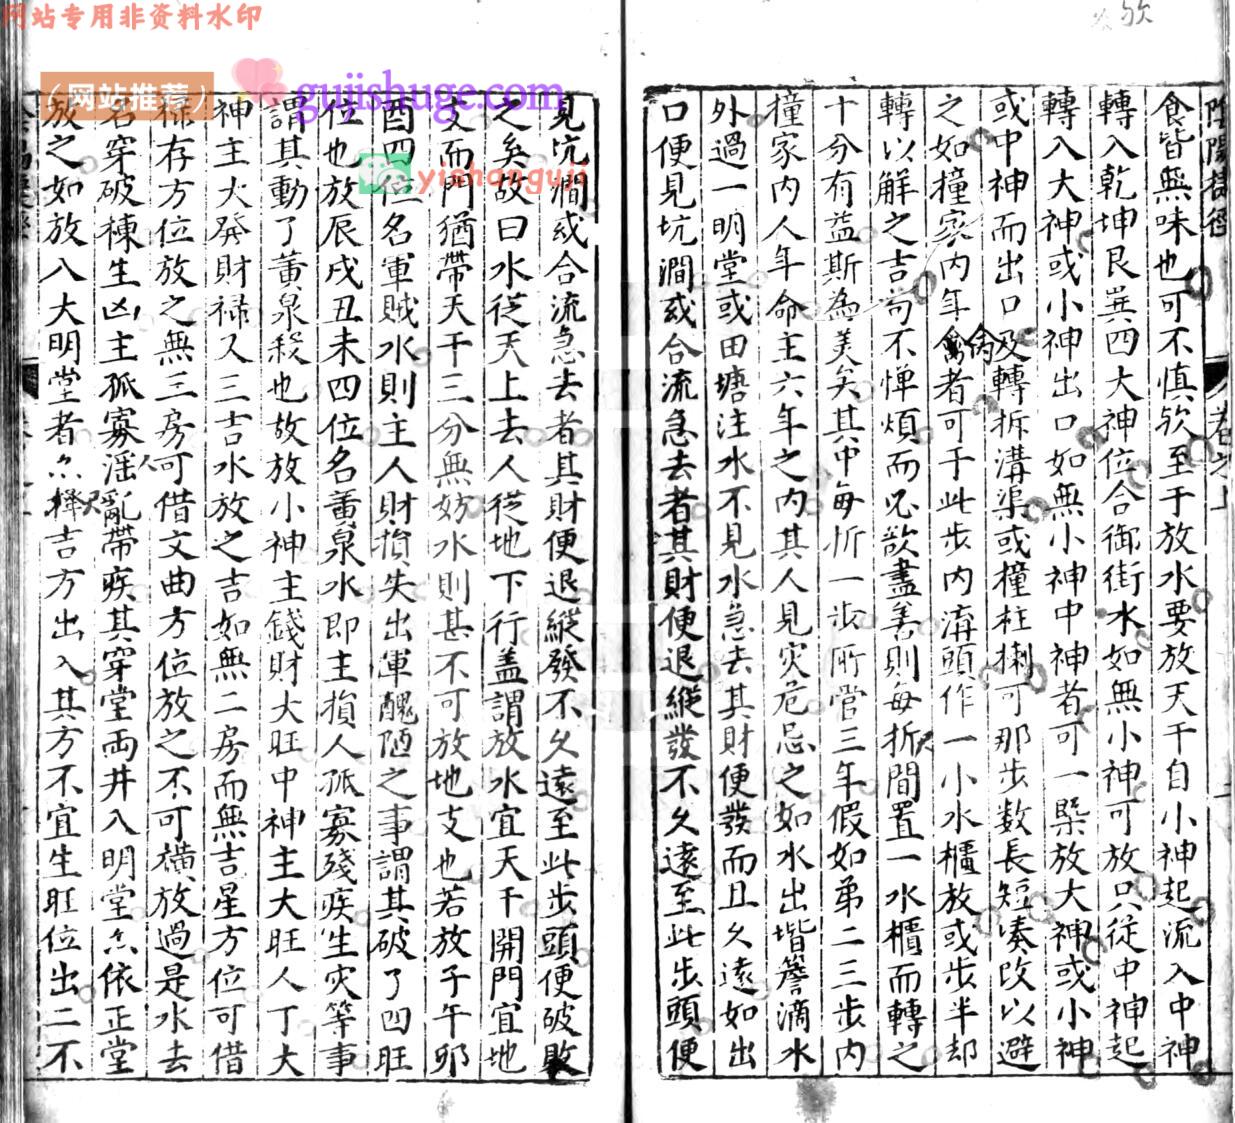 网站专用非资料水印
（网站推荐）
gujishuge.com
yishanguji
欤
陰陽捷徑
卷之上
食皆無味也可不慎欤至于放水要放天干自小神起流入中神
轉入乾坤艮巽四大神位合御街水如無小神可放只從中神起
轉入大神或小神出口如無小神中神者可一槩放大神或小神
或中神而出口及轉拆溝渠或撞柱揦可那步数長短凑改以避
之如撞家内年禽者可于此步内溝頭作一小水櫃放或步半却
轉以解之吉可不惮煩而必欲盡善則每折間置一水櫃而轉之
十分有益斯為美矣其中每折一步所管三年假如第二三步内
撞家内人年命主六年之内其人見灾危忌之如水出堦簷滴水
外過一明堂或田塘注水不見水急去其財便發而且久遠如出
口便見坑澗或合流急去者其財便退縱發不久遠至此步頭便
見坑澗或合流急去者其財便退縱發不久遠至此步頭便破敗
之矣故曰水從天上去人從地下行盖謂放水宜天干開門宜地
支而門猶帶天干三分無妨水則甚不可放地支也若放子午卯
酉四位名軍賊水則主人財損失出渾醜陋之事謂其破了四旺
位也放辰戌丑未四位名黄泉水即主損人孤寡残疾生灾等事
謂其動了黄泉殺也故放小神主錢財大旺中神主大旺人丁大
神主大發財禄又三吉水放之吉如無二房而無吉星方位可借
禄存方位放之無三房可借文曲方位放之不可横放過是水去
名穿破棟生凶主孤寡滛亂帶疾其穿堂両井入明堂亦依正堂
放之如放八大明堂者亦擇吉方出入其方不宜生旺位出二不